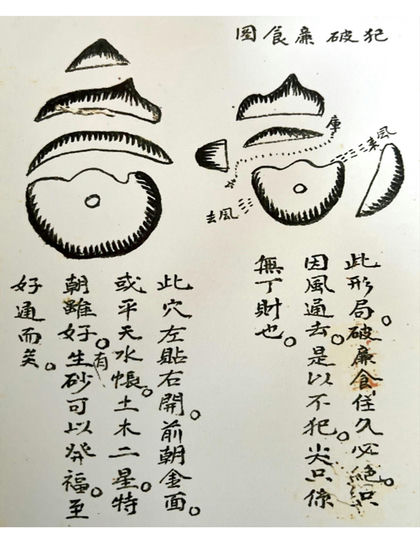 犯破廉食圖
来風
去風
此形局。破廉食住久必絕。只
因風過去。是以不犯。尖只係
無丁財也。
此穴左貼右開。前朝金面。
或平天水帳。土木二星。特
朝雖好。有生砂可以發福。至
好通而矣。